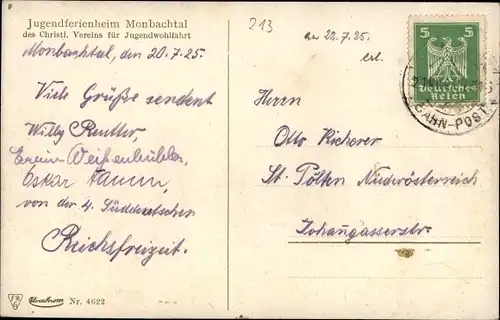 Jugendferienheim Monbachtal
des Christl. Vereins für Jugendwohlfahrt
Monbachtal, den 20.7.25.
Viele Grüße sendent
Willy Reutter,
Erwin Weißenbühler,
Oskar Hamm,
von der 4. Süddeutschen
Reichsfreizeit.
FR
6
Nr. 4622
213
an 22.7.25.
erl.
5 5
Deutsches
Reich
BAHN-POST
Herrn
Otto Kicherer
St. Pölten Niederösterreich
Johanngasserstr.